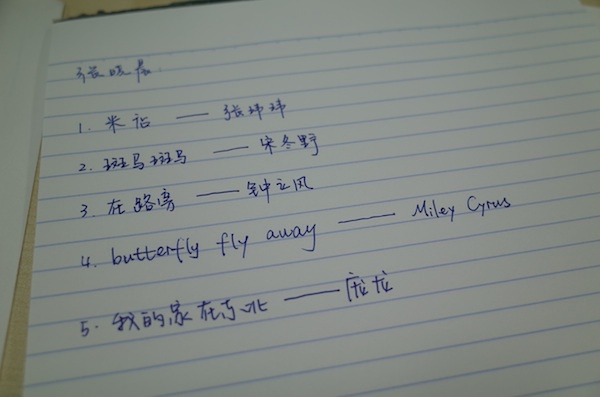 张晓晨
1. 米店 —— 张玮玮
2. 斑马斑马 —— 宋冬野
3. 在路旁 —— 钟立风
4. butterfly fly away —— Miley Cyrus
5. 我的家在东北 —— 庞龙